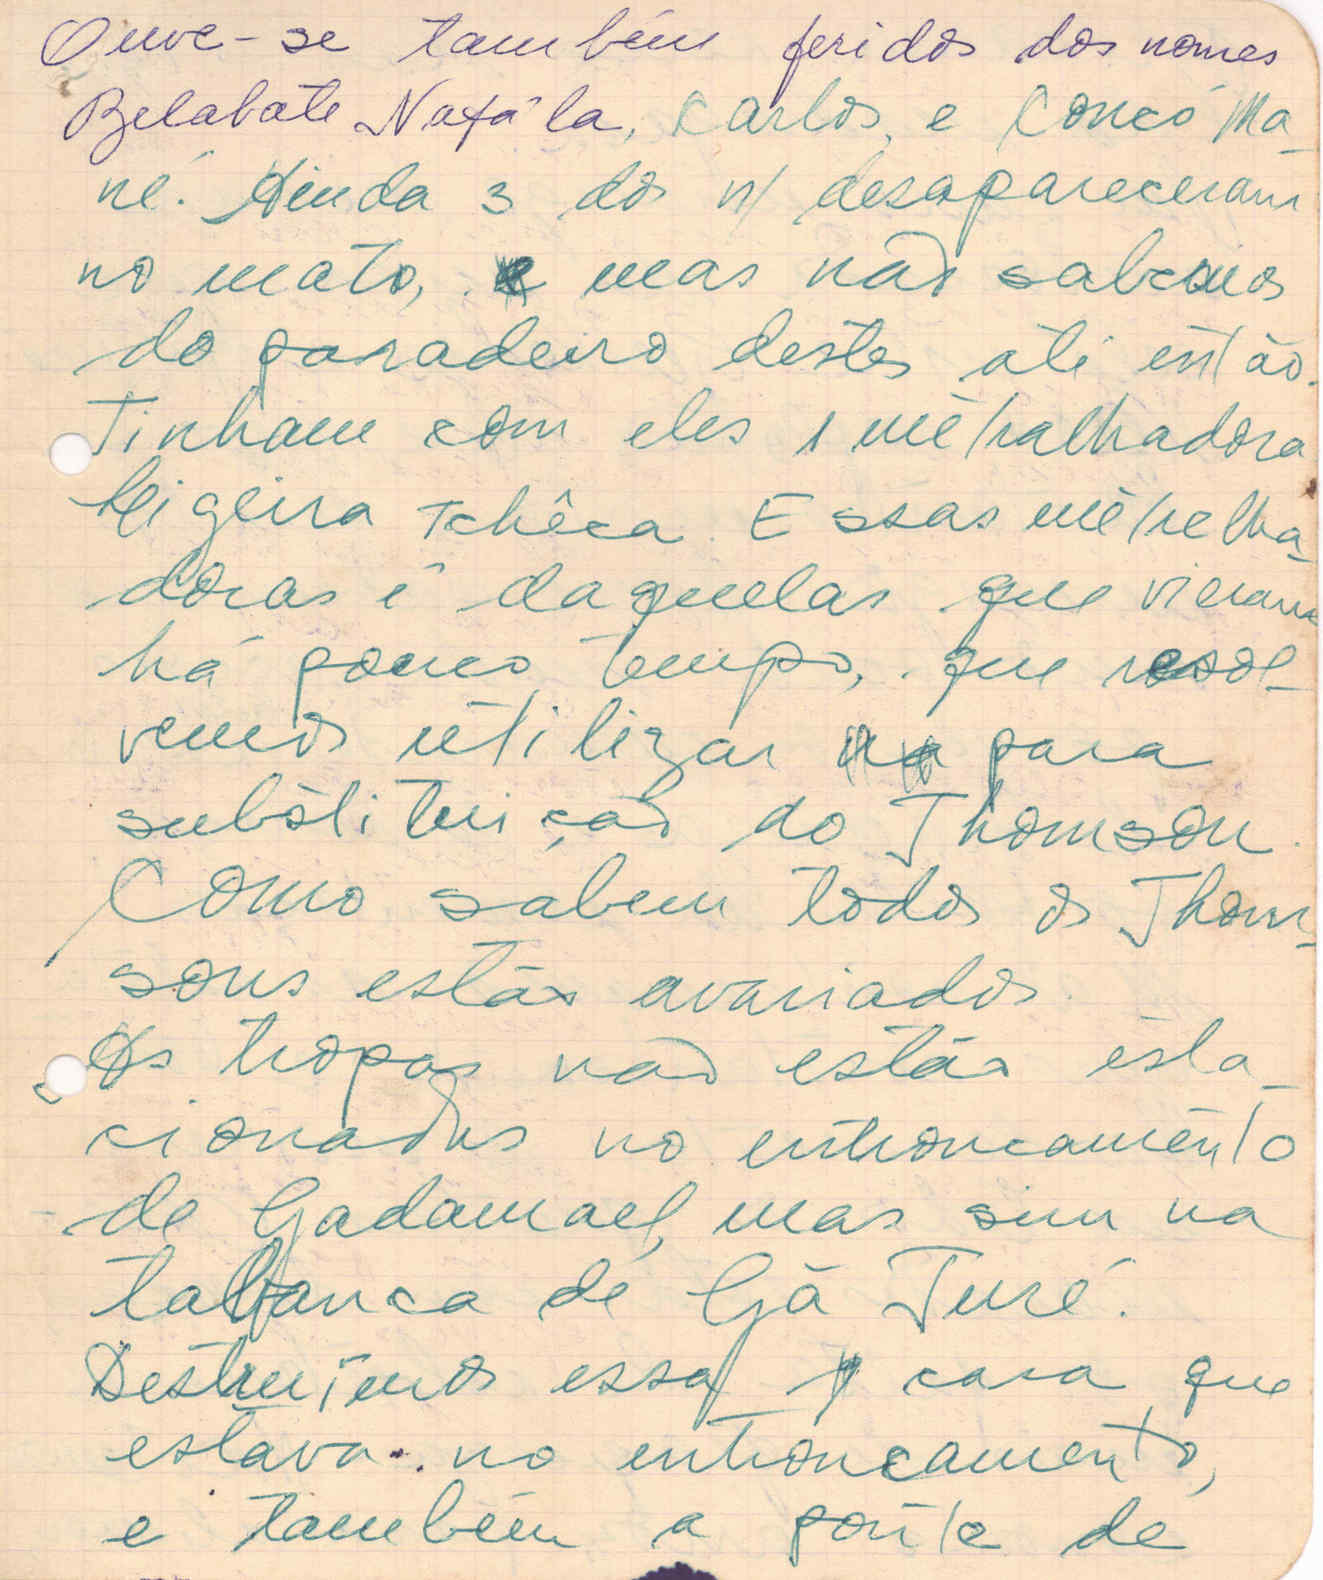 Ouve-se também feridos dos nomes
Belabate Nafá la, Carlos, e Concó Ma-
né. Ainda 3 dos n/ desapareceram
no mato, mas não sabemos
do paradeiro destes até então.
Tinham com eles 1 metralhadora
ligeira Tchêca. Essas metrelha-
doras é daquelas que vieram
há pouco tempo, que resol-
vemos utilizar para
substituição do Thomson.
Como sabem todos os Thom-
sons estão avariados.
As tropas não estão esta-
cionadas no entroncamento
de Gadamael, mas sim na
tabanca de Gã Turé.
Destruimos essa casa que
estava no entroncamento,
e também a ponte de